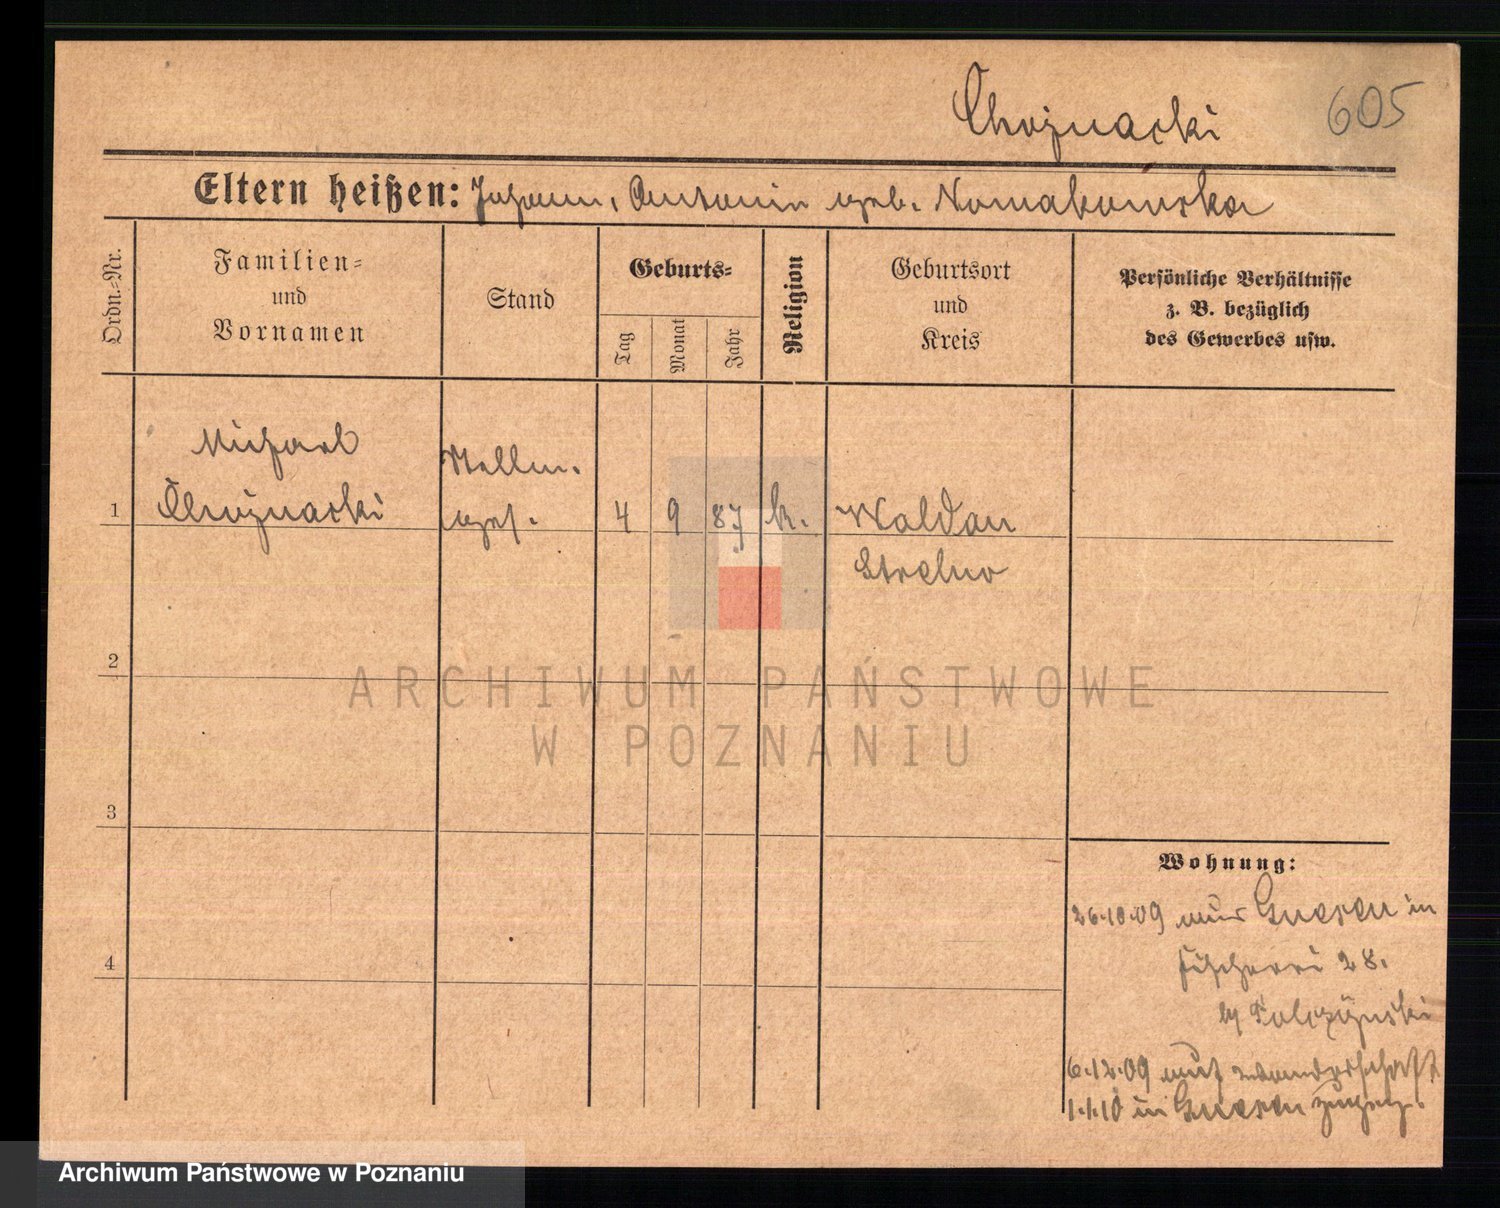 Chojnacki 605
Eltern heißen: Johann, Antonin geb. Nowakowska
Ordn.-Nr.
Familien-
und
Vornamen
Stand
Geburts-
Tag
Monat
Jahr
Religion
Geburtsort
und
Kreis
Persönliche Verhältnisse
z. B. bezüglich
des Gewerbes usw.
Michael
Kelln.
1 Chojnacki ges. 4 9 87 k. Waldau
Strelno
2
ARCHIWUM PAŃSTWOWE
W POZNANIU
3
Wohnung:
26.10.09 aus Gnesen in
Fischerei 28.
by
4
6.12.09 auf Wanderschaft
1.1.10 in Gnesen zugez.
Archiwum Państwowe w Poznaniu